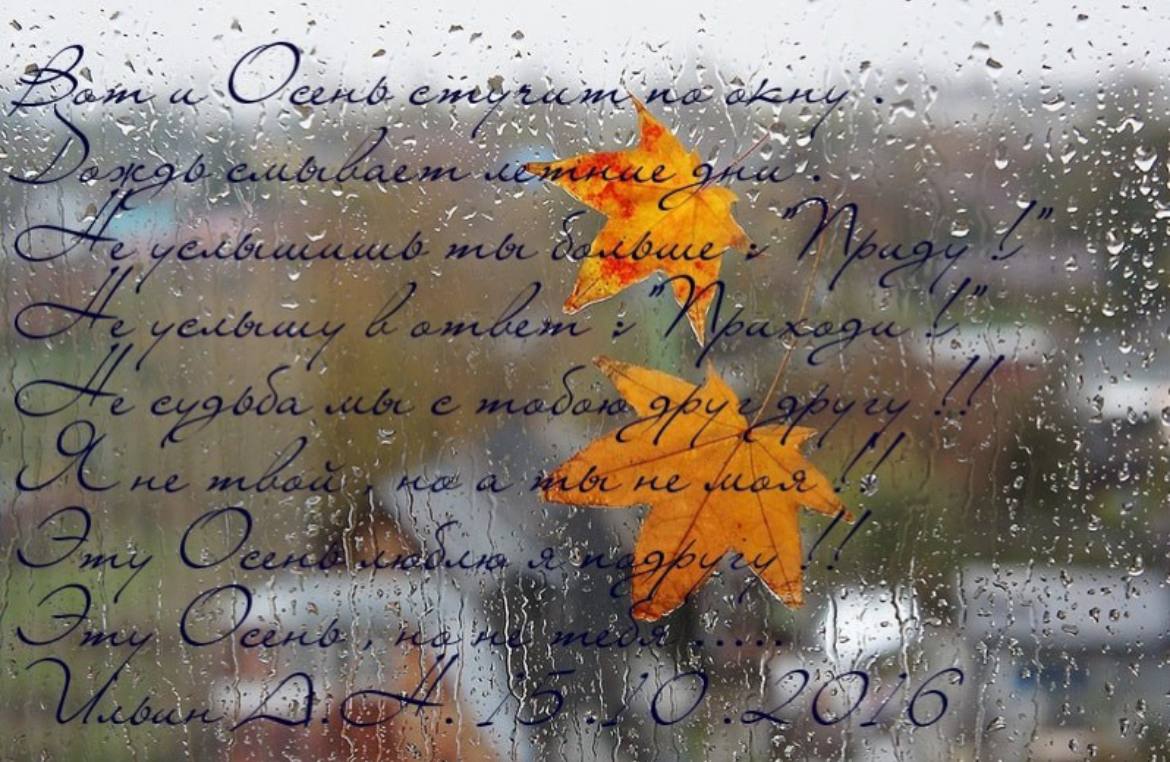 Вот и Осень стучит по окну .
Дождь смывает летние дни .
Не услышишь ты больше : "Приду !"
Не услышу в ответ : "Приходи !"
Не судьба мы с тобою друг другу !!
Я не твой , но а ты не моя !!
Эту Осень люблю я подругу !!
Эту Осень , но не тебя ......
Ильин Д.А. 15.10.2016